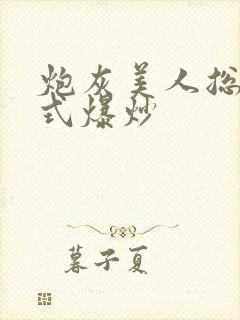 炮灰美人总
式爆炒
暮子夏